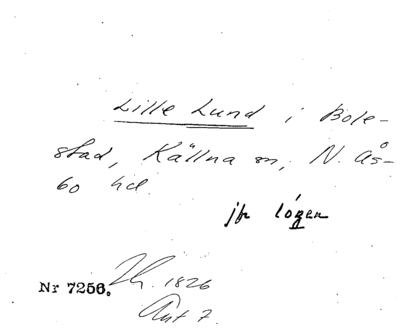 Lille Lund i Bole-
stad, Källna sn, N. Ås-
bo hd.
jfr lógen
Nr 7256. Th. 1826
Ant 7